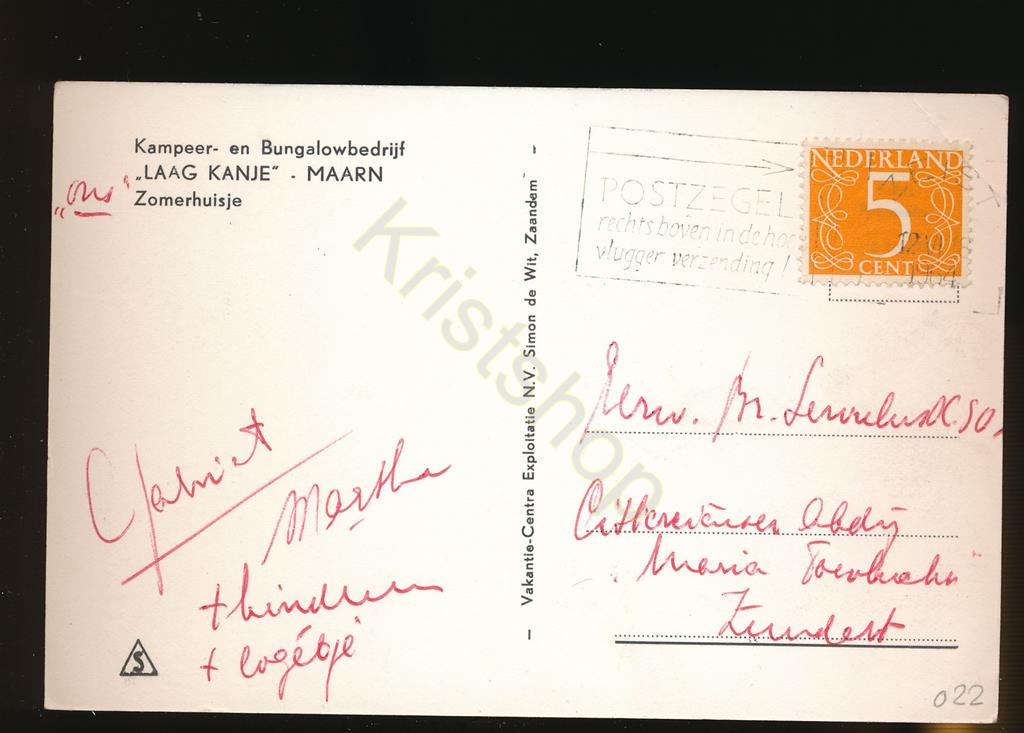 Kampeer- en Bungalowbedrijf
„LAAG KANJE" - MAARN
„ons"
Zomerhuisje
Vakantie-Centra Exploitatie N.V. Simon de Wit, Zaandem
POSTZEGEL
rechts boven in de hoe
vlugger verzending!
NEDERLAND
5
CENT
1964
Eerw. Br.
Cisterciënser Abdij
"Maria Toevlucht"
Zundert
Martha
+ kinderen
+ logétje
S
022
Kristshop